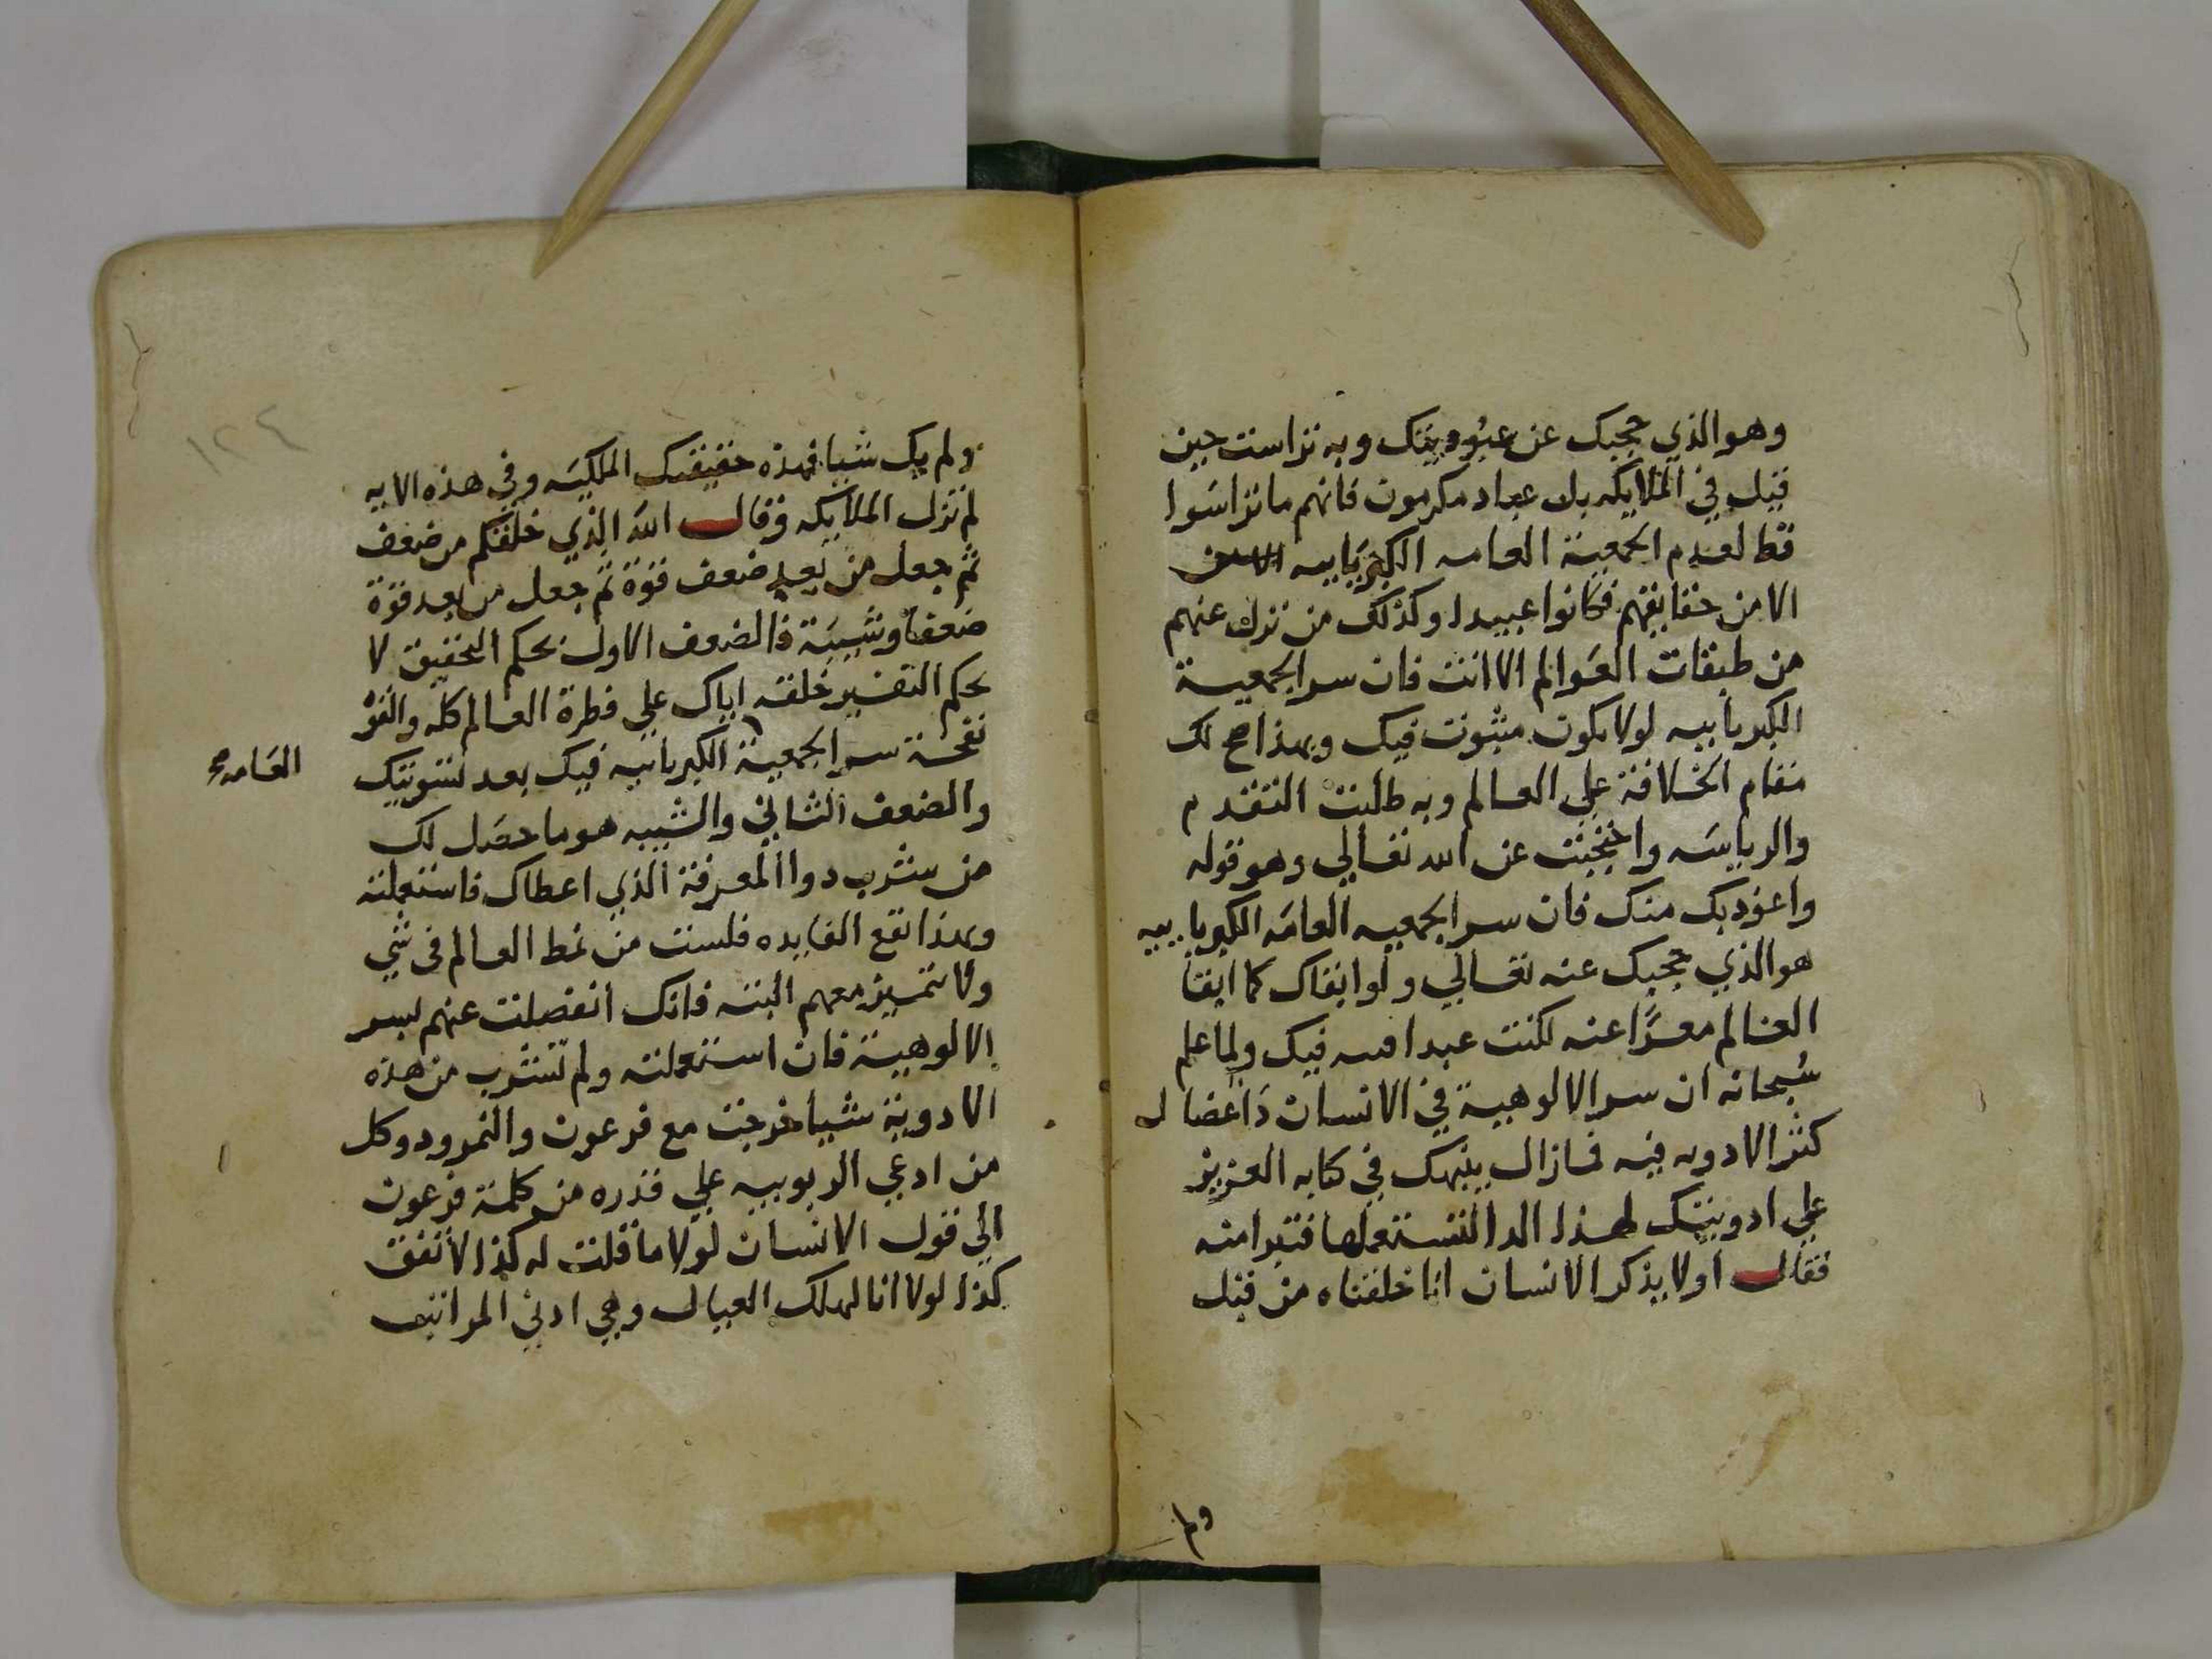 وهو الذي حجبك عن عبوديتك وبه تراست حين
قيل في الملايكه بل عباد مكرمون فانهم ما تراسوا
قط لعدم الجمعية العامه الكبرياييه
الا من حقايقهم فكانوا عبيدا وكذلك من نزل عنهم
من طبقات العوالم الا انت فان سر الجمعية
الكبريابيه لولا يكون مثبوت فيك وبهذا صح لك
مقام الخلافة علي العالم وبه طلبت التقدم
والرياسه واحتجبت عن الله تعالي وهو قوله
واعوذ بك منك فان سر الجمعيه العامه الكبريابيه
هو الذي حجبك عنه تعالي ولو ابقاك كما ابقا
العالم معرًا عنه لكنت عبدا فيك ولما علم
سُبحانه ان سر الالوهية في الانسان دَاعضال
كثر الادويه فيه فما زال ينبهك في كتابه العزيز
علي ادويتك لهذا الدا لتستعملها فتبرا منه
فقال اولا يذكر الانسان انا خلقناه من قبل
ولم
ولم يك شيا فهذه حقيقتك الملكيه وفي هذه الايه
لم تزل الملايكه وقال الله الذي خلقكم من ضعف
ثم جعل من بعد ضعف قوة ثم جعل من بعد قوة
ضعفا وشيبَة فالضعف الاول بحكم التحقيق لا
بحكم التفسير خلقه اياك علي فطرة العالم كله والقوّ
نفحة سر الجمعية الكبريابيه فيك بعد تسويتك
العَامه صح
والضعف الثاني والشيبه هو ما حصَل لك
من شرب دوا المعرفة الذي اعطاك فاستعملته
وبهذا تقع الفايده فلست من نمط العالم فى شي
ولا تتميز معهم البته فانك انفصلت عنهم بسر
الالوهية فان استعملته ولم تشرب من هذه
الادوية شيا خرجت مع فرعون والنمرود وكل
من ادعي الربوبيه علي قدره من كلمة فرعون
الي قول الانسان لولا ما قلت له كذا لاتفق
كذا لولا انا لهلك العيال وهي ادني المراتب
١٢٤